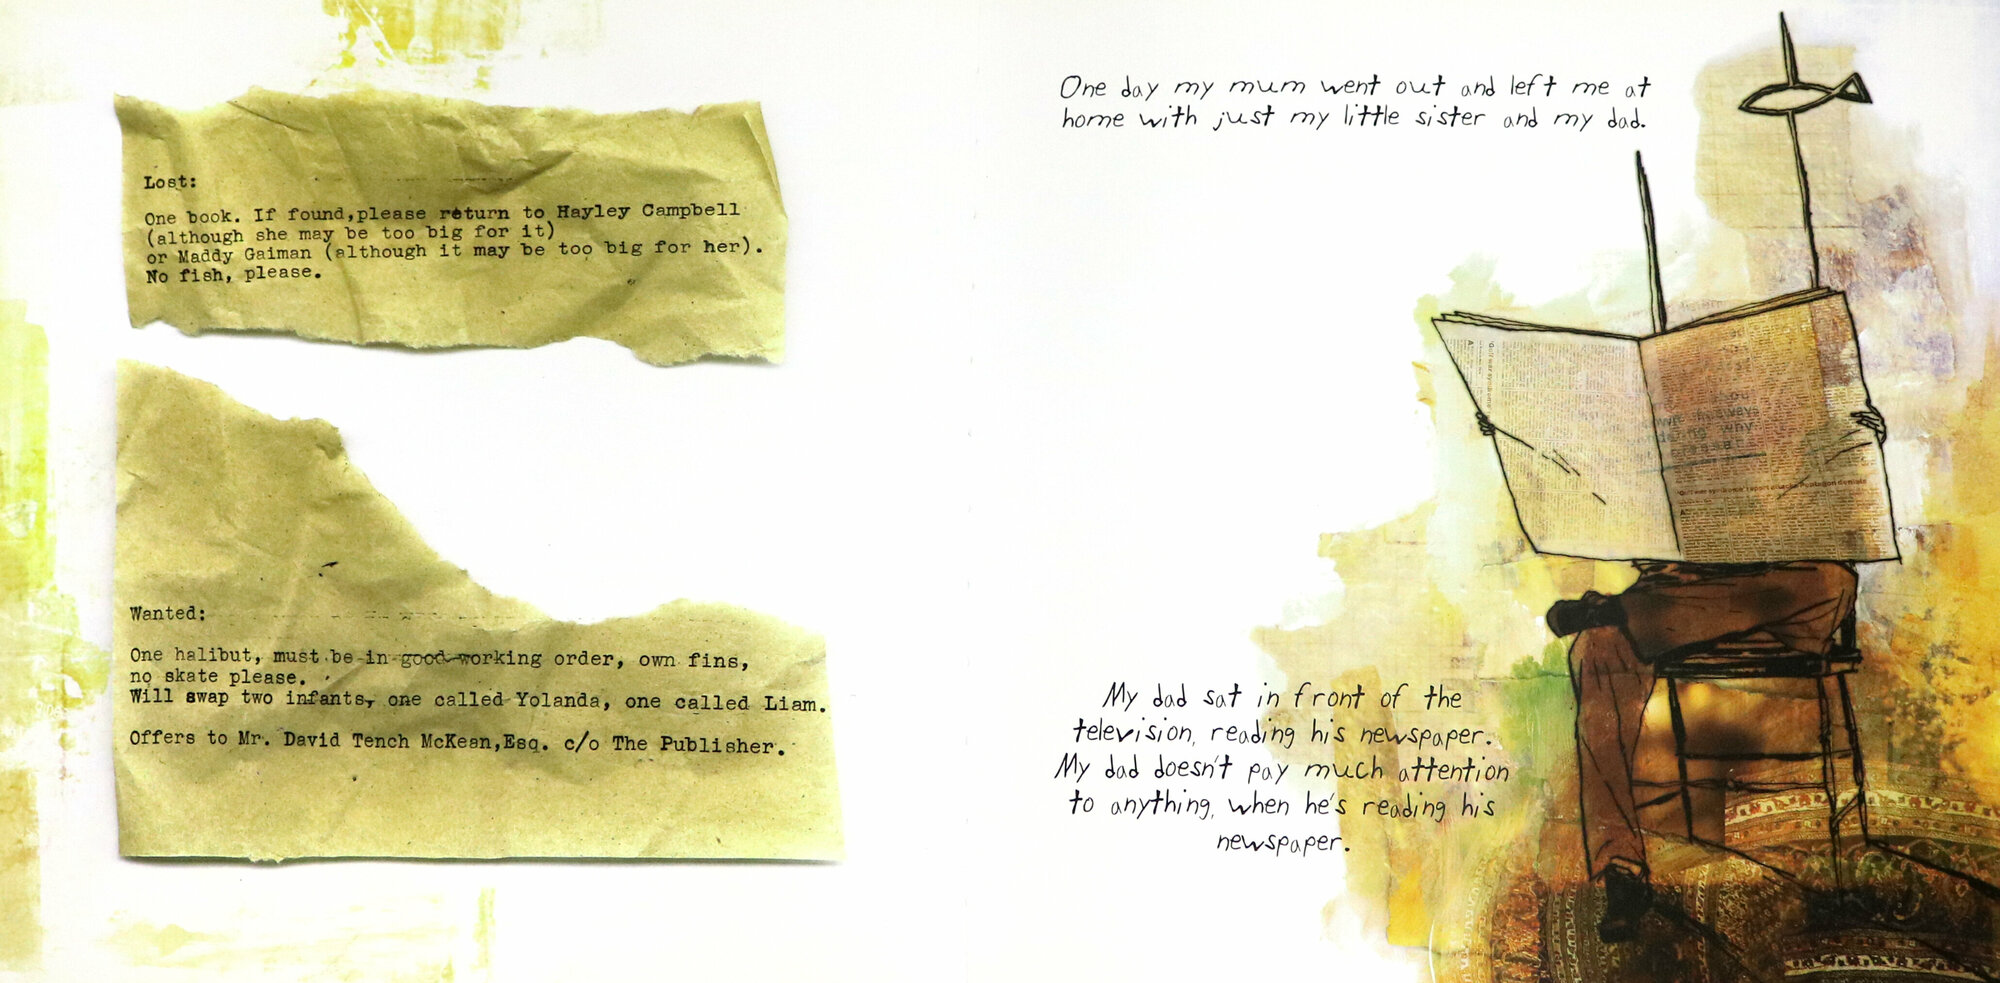 Lost:
One book. If found,please return to Hayley Campbell
(although she may be too big for it)
or Maddy Gaiman (although it may be too big for her).
No fish, please.
Wanted:
One halibut, must be in good working order, own fins,
no skate please.
Will swap two infants, one called Yolanda, one called Liam.
Offers to Mr. David Tench McKean,Esq. c/o The Publisher.
One day my mum went out and left me at
home with just my little sister and my dad.
'Gulf war syndrome'
'Gulf war syndrome' report attacks Pentagon denials
My dad sat in front of the
television, reading his newspaper.
My dad doesn't pay much attention
to anything, when he's reading his
newspaper.